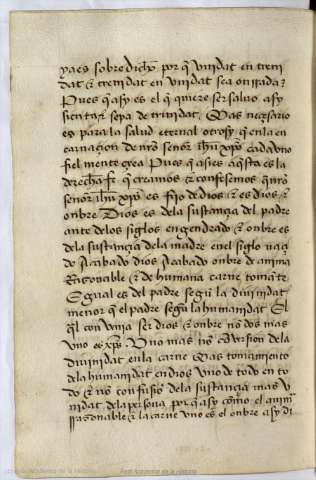 ya es sobre dicho por q̃ vnidat en treni
dat & trenidat en vnidat sea onrrada?
Pues q̃ asy es el q̃ quiere ser saluo asy
sienta & sepa de trinidat. Mas neçesario
es para la salud eternal otrosy q̃ en la en
carnaçion de nr̃o señor ihũ xp̃o cada vno
fiel mente crea Pues q̃ asi es aq̃sta es la
derecha fe q̃ creamos & confesemos q̃ nr̃o
señor ihũ xp̃o es fijo de dios & es dios &
onbre Dios es de la sustançia del padre
ante de los siglos engendrado & onbre es
de la sustançia de la madre en el siglo naçi
do Acabado dios Acabado onbre de anima
Razonable & de humana carne
Egual es del padre segũ la diuinidat
menor q̃ el padre segũ la humanidat El
q̃l conuenia ser dios & onbre no dos mas
vno es xp̃o Vno mas nõ cõuersion de la
diuinidat en la carne Mas tomamiento
de la humanidat en dios vno de todo en to
do & nõ confusiõ de la sustançia mas v
nidat de la persona por q̃ asy cõmo el anima
rrasonable & la carne vno es el onbre asy di
Real Academia de la Historia